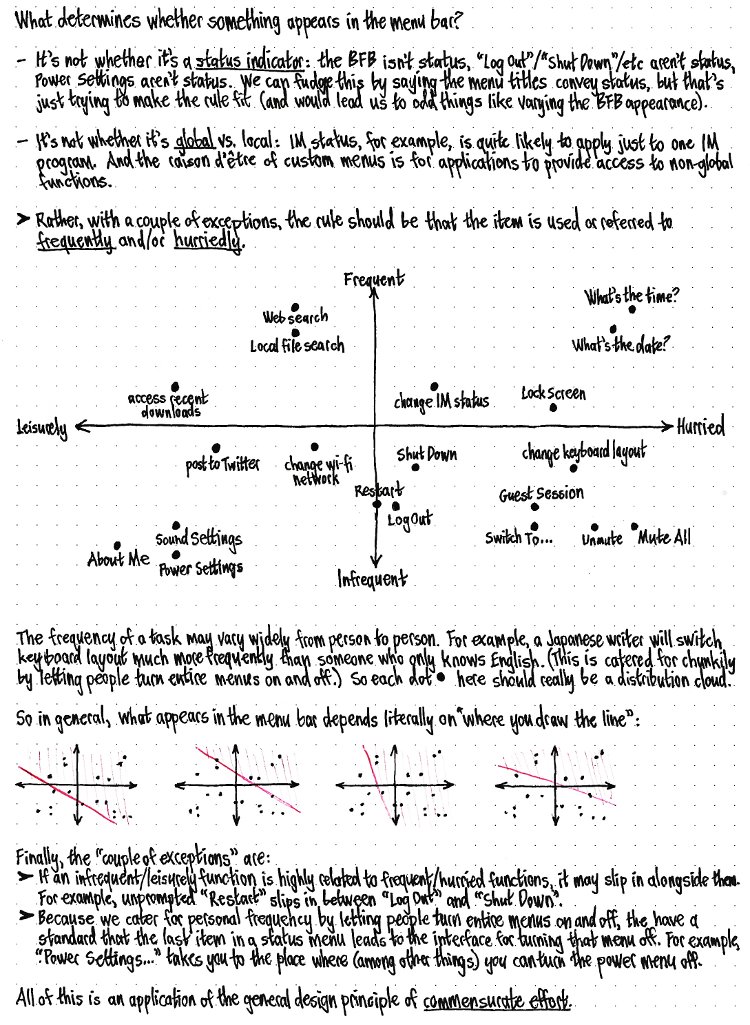 What determines whether something appears in the menu bar?
- It's not whether it's a status indicator: the BFB isn't status, "Log Out"/"Shut Down"/etc aren't status,
Power Settings aren't status. We can fudge this by saying the menu titles convey status, but that's
just trying to make the rule fit (and would lead us to odd things like varying the BFB appearance).
- It's not whether it's global vs. local: IM status, for example, is quite likely to apply just to one IM
program. And the raison d'être of custom menus is for applications to provide access to non-global
functions.
➤ Rather, with a couple of exceptions, the rule should be that the item is used or referred to
frequently and/or hurriedly.
Frequent
What's the time?
Web search
Local file search
What's the date?
access recent
downloads
change IM status
Lock Screen
Leisurely
Hurried
post to Twitter
change wi-fi
network
Shut Down
change keyboard layout
Restart
Log Out
Guest Session
Sound Settings
Switch To...
Unmute
Mute All
About Me
Power Settings
Infrequent
The frequency of a task may vary widely from person to person. For example, a Japanese writer will switch
keyboard layout much more frequently than someone who only knows English. (This is catered for chunkily
by letting people turn entire menus on and off.) So each dot • here should really be a distribution cloud.
So in general, what appears in the menu bar depends literally on "where you draw the line":
Finally, the "couple of exceptions" are:
➤ If an infrequent/leisurely function is highly related to frequent/hurried functions, it may slip in alongside them.
For example, unprompted "Restart" slips in between "Log Out" and "Shut Down".
➤ Because we cater for personal frequency by letting people turn entire menus on and off, the have a
standard that the last item in a status menu leads to the interface for turning that menu off. For example,
"Power Settings..." takes you to the place where (among other things) you can turn the power menu off.
All of this is an application of the general design principle of commensurate effort.